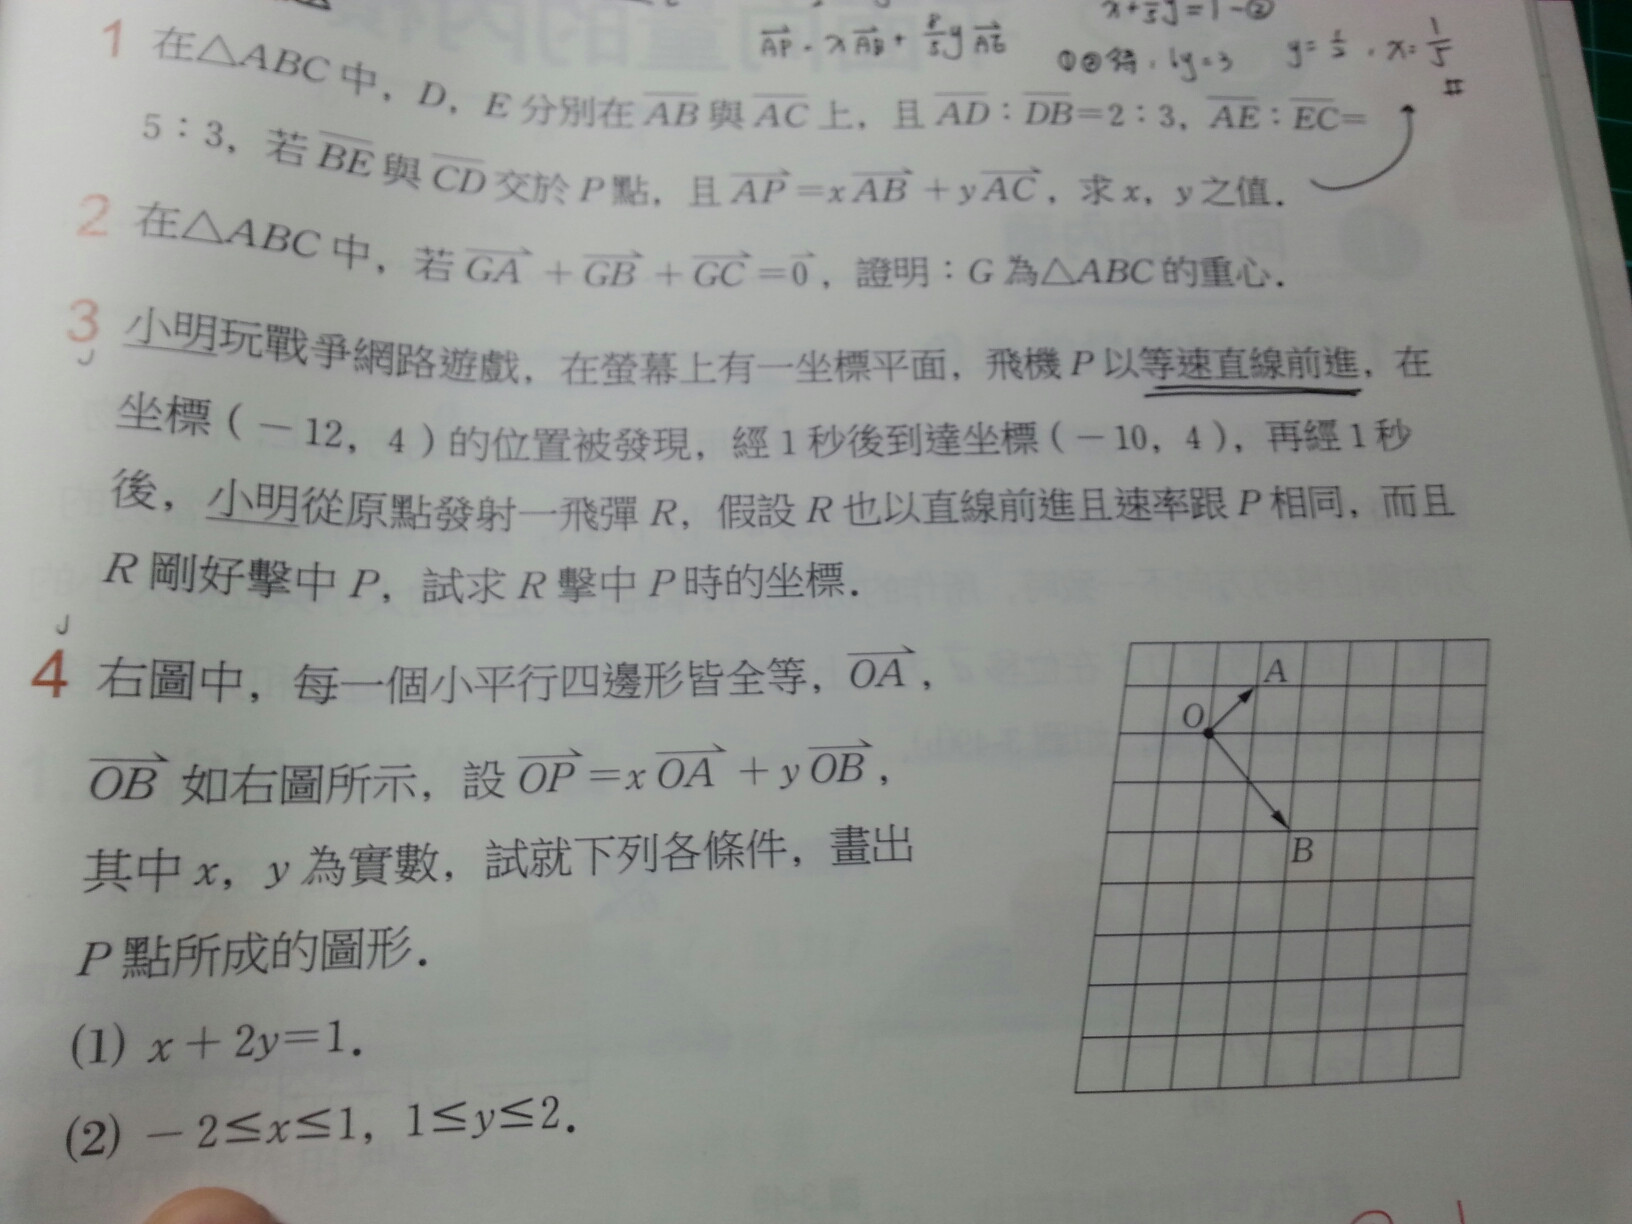 x+
=1-②
AP = xAB + 8/5 y AE
①②得, 6y=3 y=1/2, x=1/5 #
1 在△ABC中, D, E分別在AB與AC上, 且AD:DB=2:3, AE:EC=
5:3, 若BE與CD交於P點, 且AP=xAB+yAC, 求x, y之值.
2 在△ABC中, 若GA+GB+GC=0, 證明:G為△ABC的重心.
3 小明玩戰爭網路遊戲, 在螢幕上有一坐標平面, 飛機P以等速直線前進, 在
坐標(-12, 4)的位置被發現, 經1秒後到達坐標(-10, 4), 再經1秒
後, 小明從原點發射一飛彈R, 假設R也以直線前進且速率跟P相同, 而且
R剛好擊中P, 試求R擊中P時的坐標.
4 右圖中, 每一個小平行四邊形皆全等, OA,
OB 如右圖所示, 設OP=xOA+yOB,
其中x, y為實數, 試就下列各條件, 畫出
P點所成的圖形.
(1) x+2y=1.
(2) -2≤x≤1, 1≤y≤2.
A
O
B